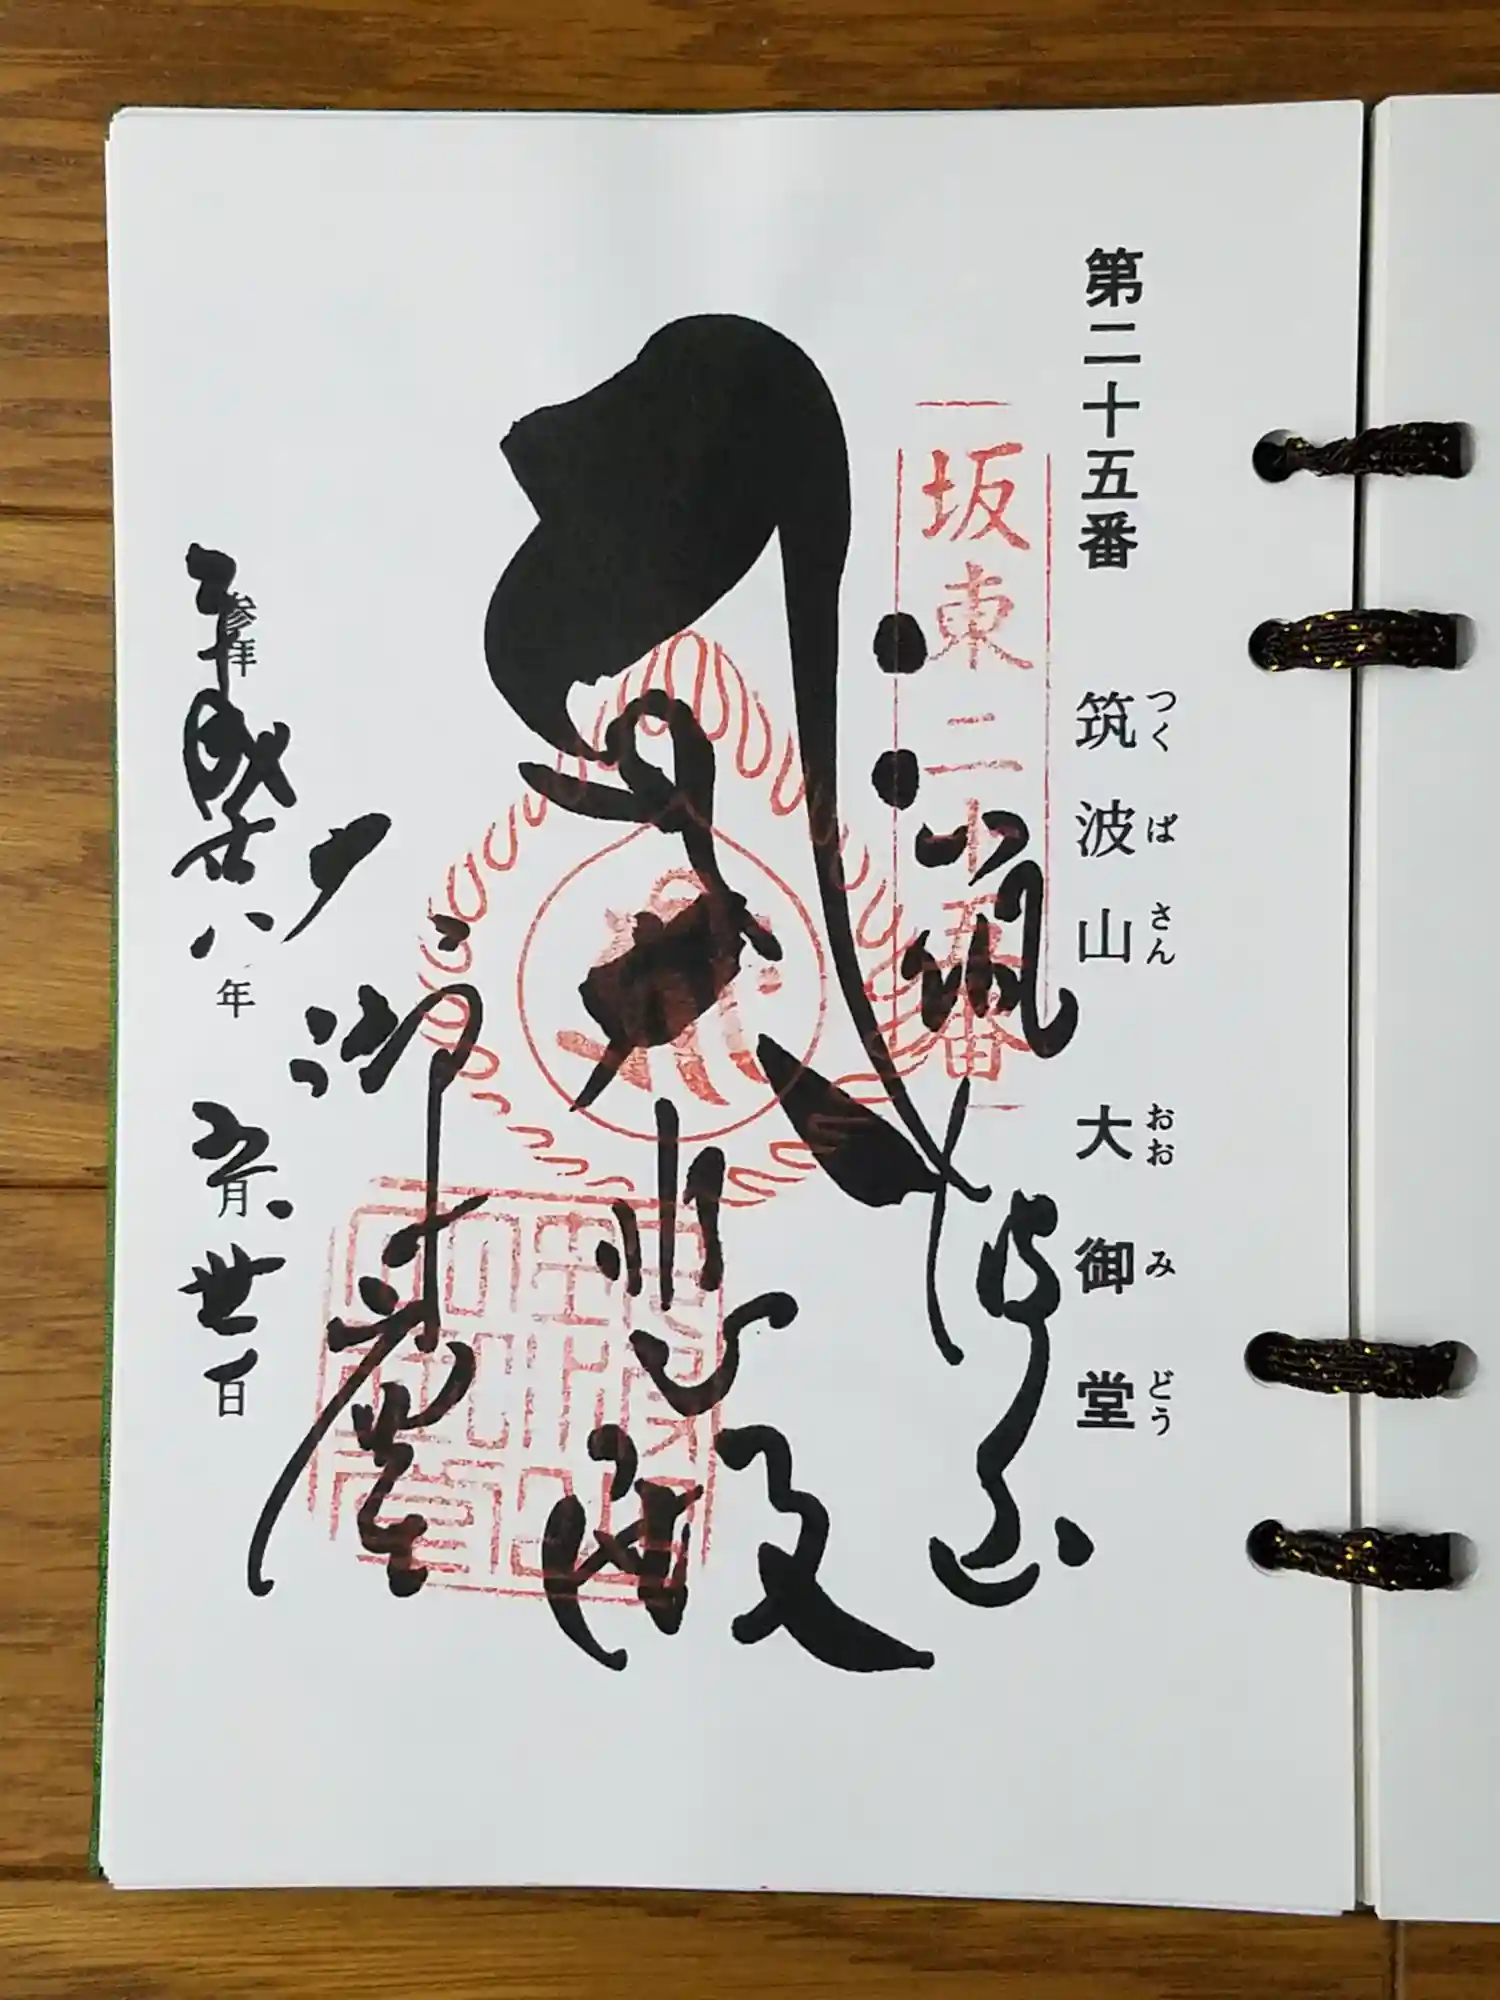 第二十五番
筑波山 大御堂
つくばさん おおみどう
坂東二十五番
筑波山
大悲殿
大御堂
参拝
平成廿八年 五月 廿日